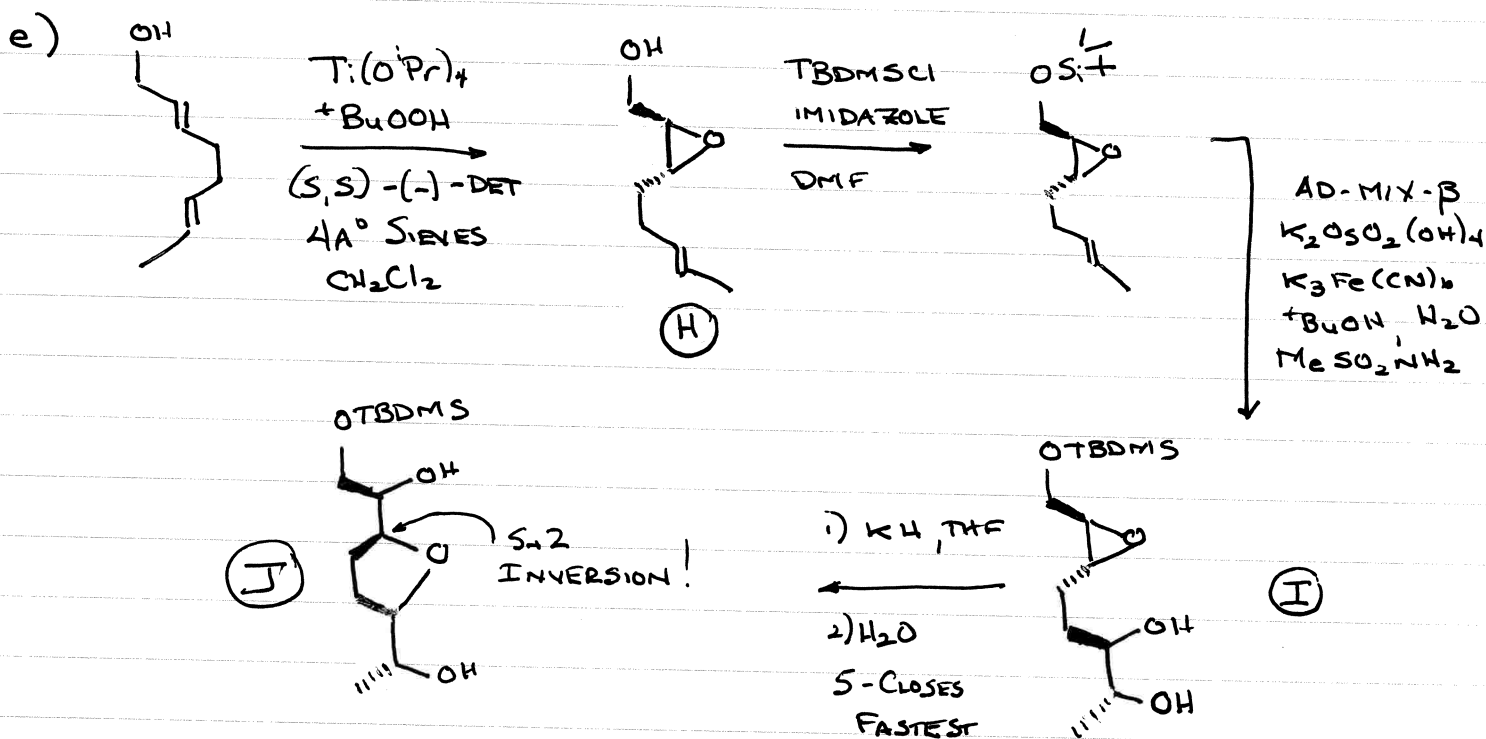 e)
OH
Ti(OⁱPr)₄
ᵗBuOOH
(S,S)-(-)-DET
4A° SIEVES
CH₂Cl₂
OH
O
H
TBDMSCl
IMIDAZOLE
DMF
OSi
O
AD-MIX-β
K₂OsO₂(OH)₄
K₃Fe(CN)₆
ᵗBuOH, H₂O
MeSO₂NH₂
OTBDMS
O
OH
OH
I
1) KH, THF
2) H₂O
5-CLOSES
FASTEST
OTBDMS
OH
O
SN2
INVERSION!
OH
J